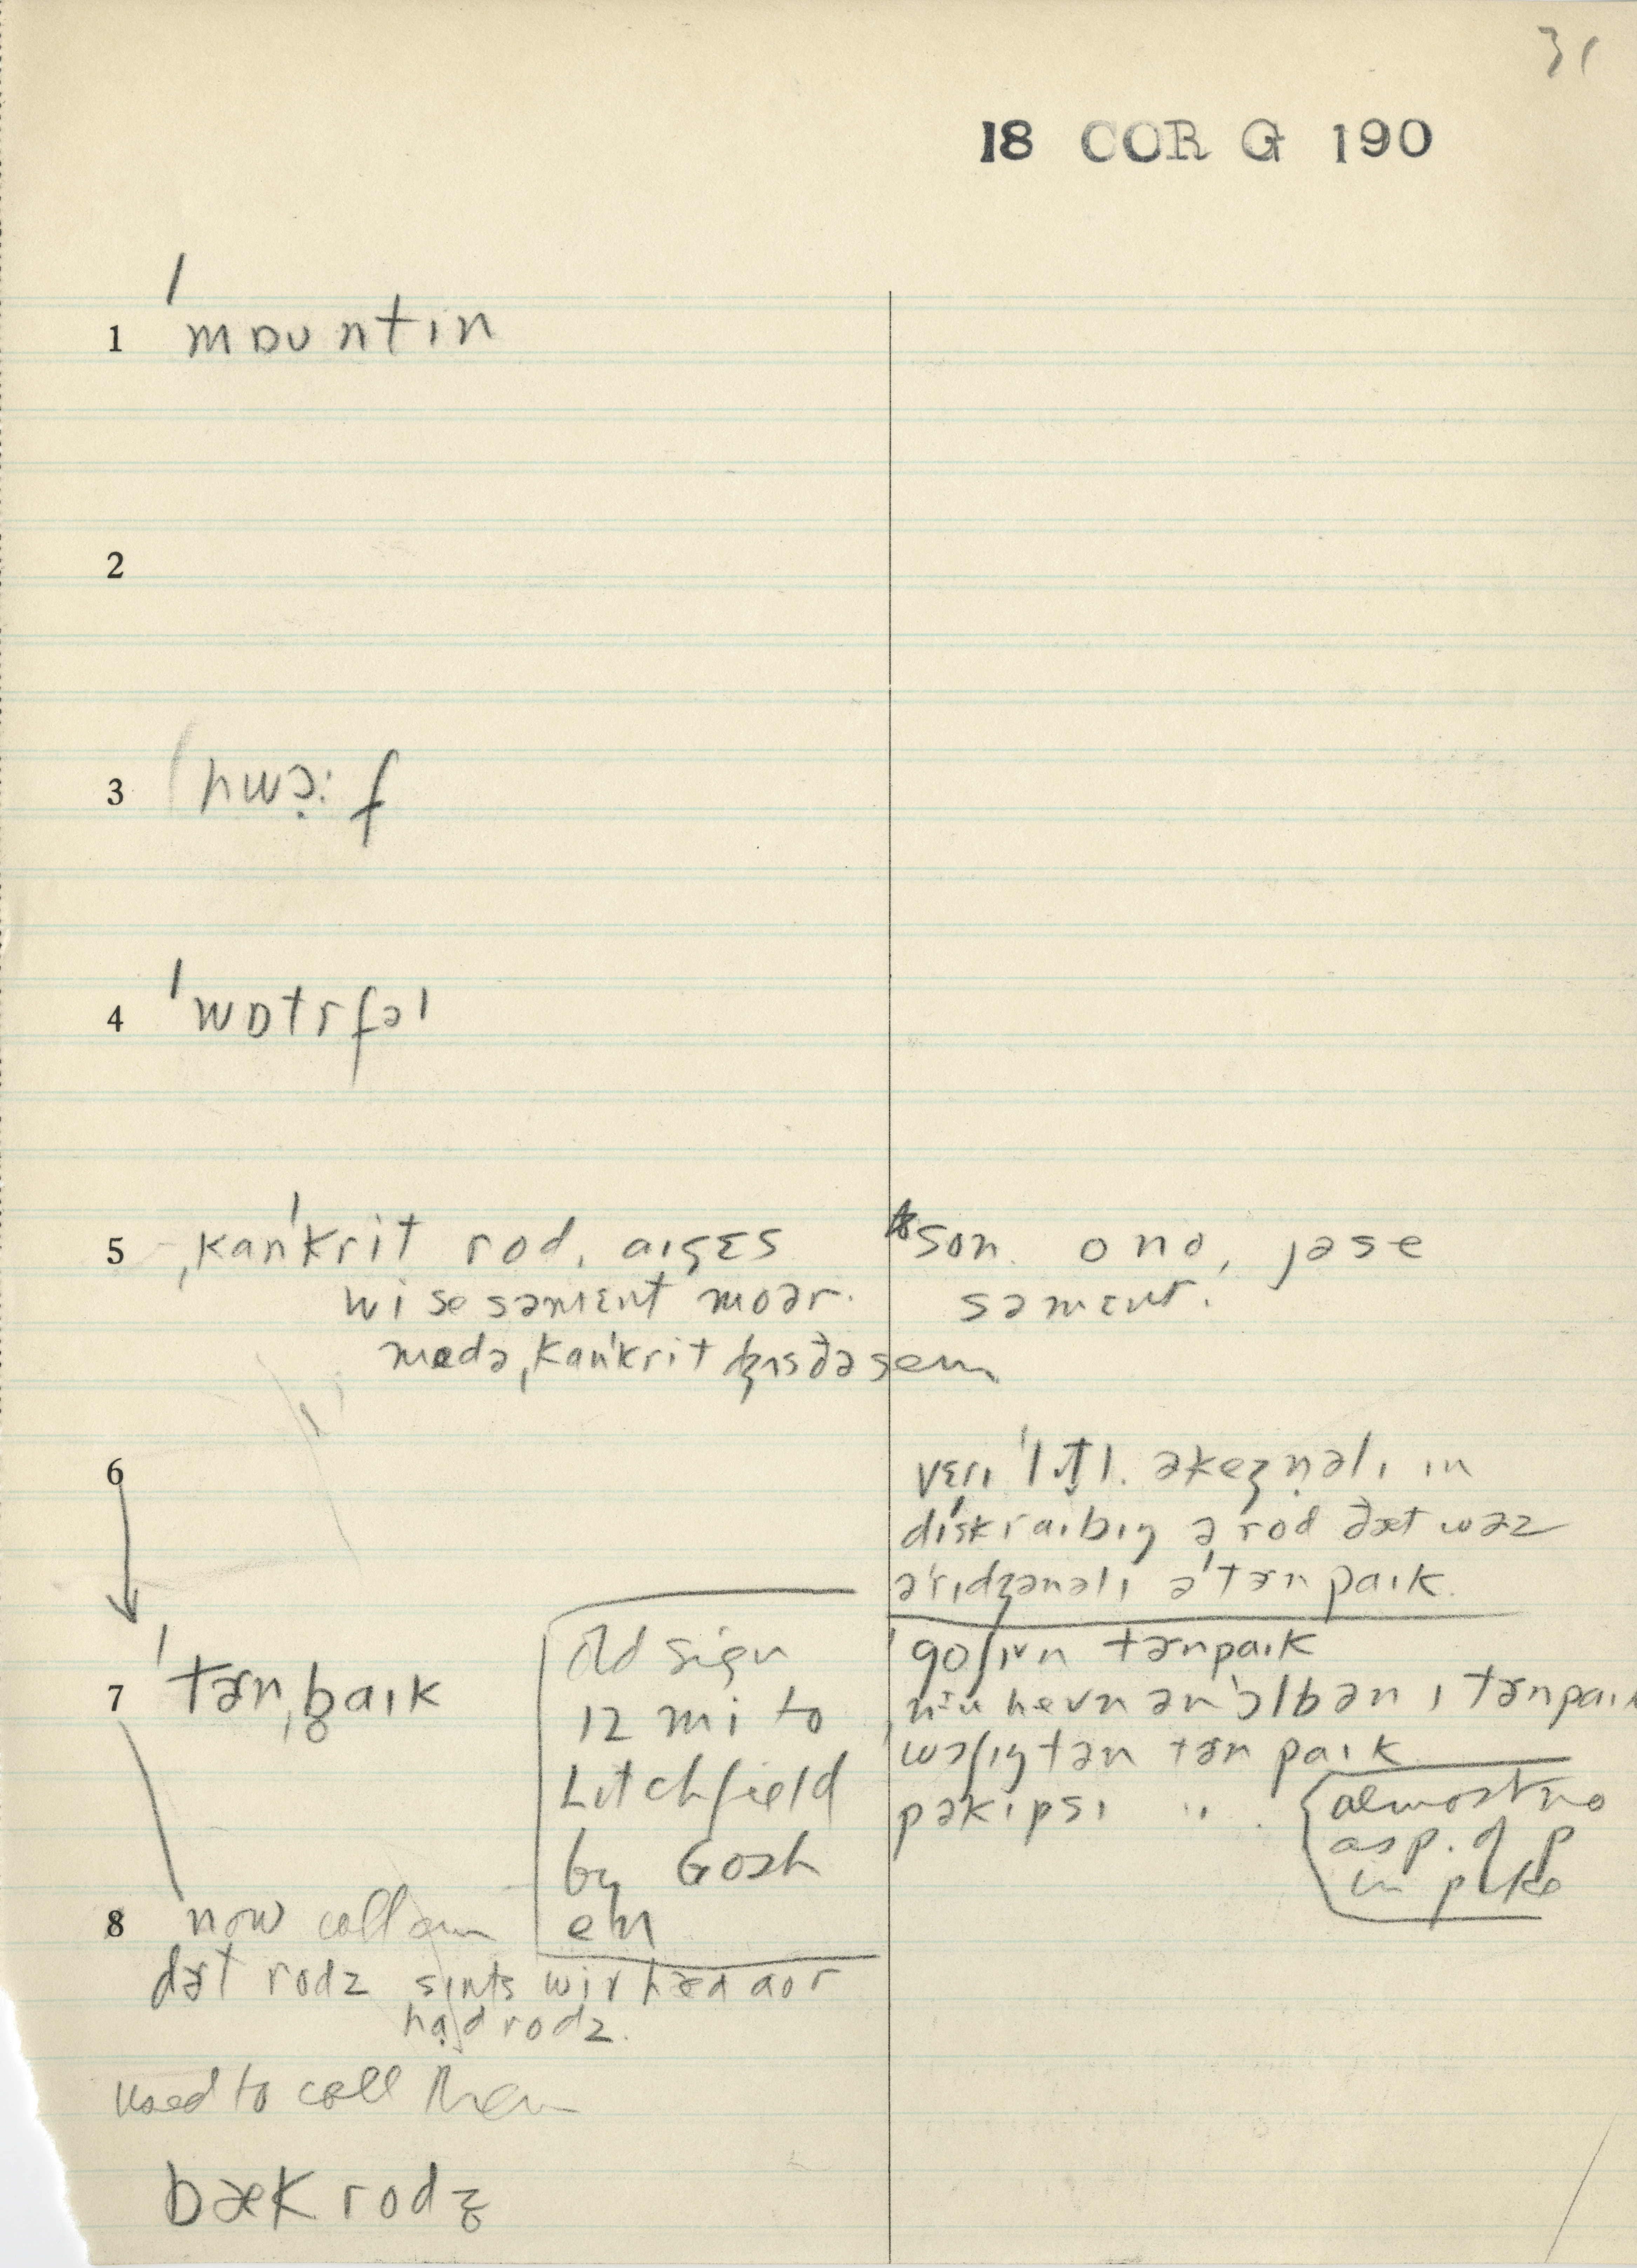 31
18 COR G 190
1 ˈmɒʊntɪn
2
3 hwɔ̣:f
4 ˈwɒtrfəl
5 ˌkanˈkrit rod. aɪ
wi se səmɛnt moər.
ˌkanˈkrit ðə sem
son. ono, jə se
səmɛnt.
6
vɛrɪ ˈlɪtl. əkeʒṇəlɪ ɪn
dɪˈskraɪbɪŋ ə rod ðæt wəz
əˈrɪdʒənəlɪ ə ˈtɜnpaɪk.
7 ˈtɜnˌb̥aɪk
old sign
12 mi to
Litchfield
by Gosh
en
goʃɪn tɜnpaɪk
hevn ən ˈɔlbənɪ tɜnpaɪk
wɔʃɪŋtən tɜnpaɪk
pəkɪpsɪ "
almost no
asp. of p
in pike
8 now call em
dɜt rodz sɪnts wiv hæd aor
hạd rodz.
used to call them
bæk rodz̥